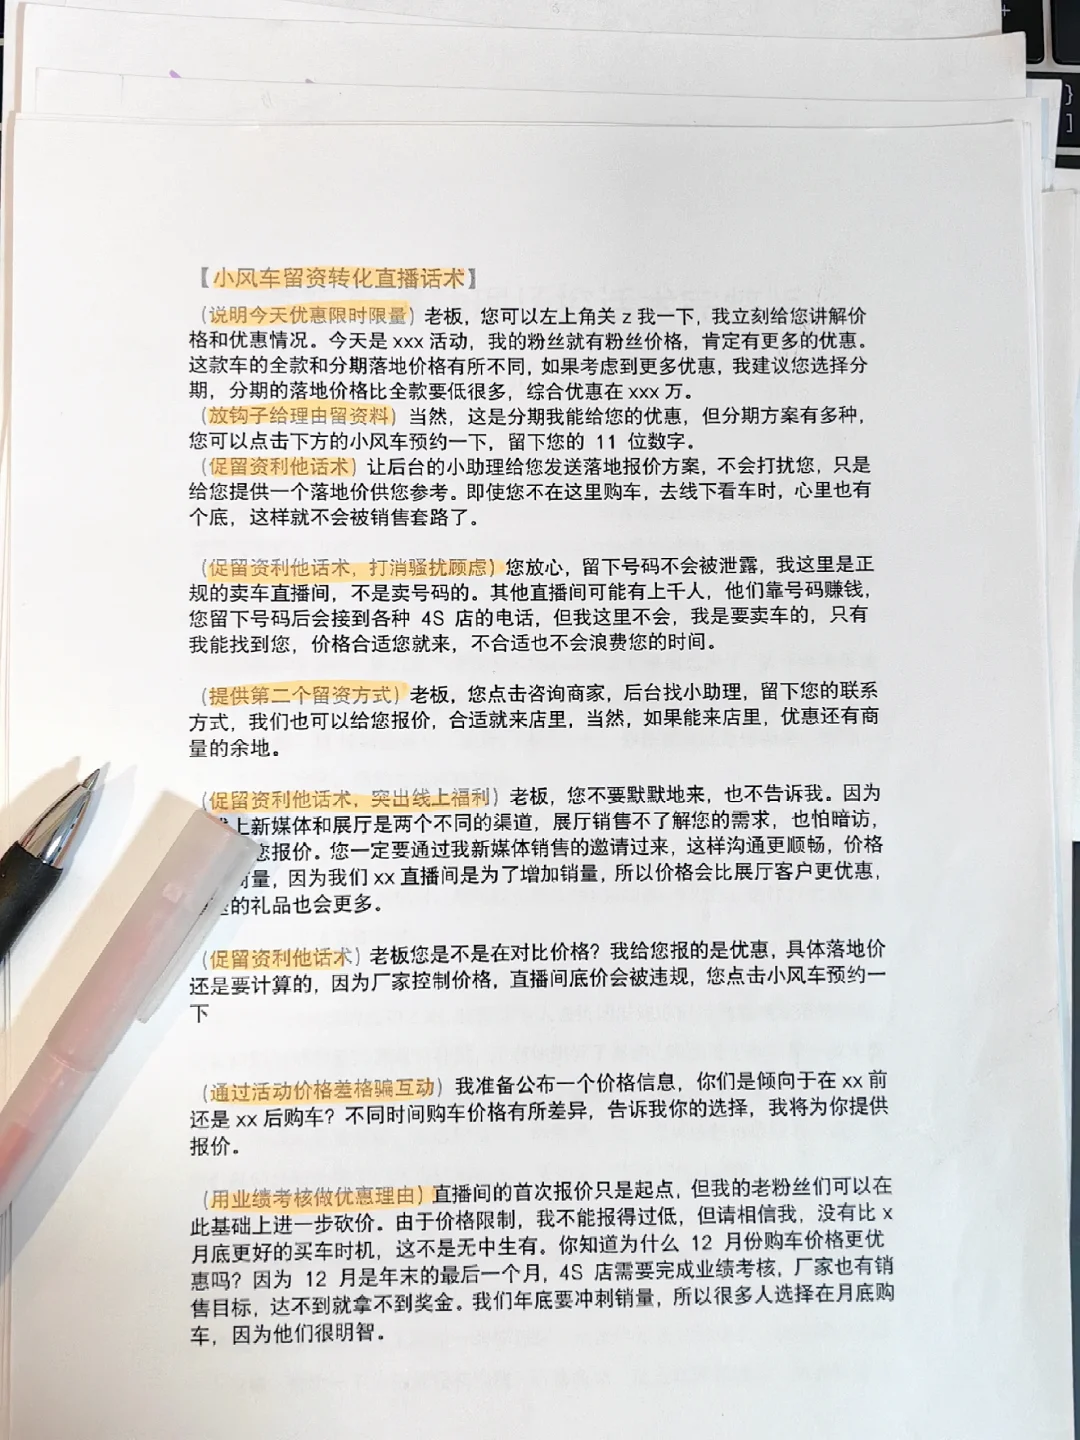 【小风车留资转化直播话术】
（说明今天优惠限时限量）老板，您可以左上角关 z 我一下，我立刻给您讲解价
格和优惠情况。今天是 xxx 活动，我的粉丝就有粉丝价格，肯定有更多的优惠。
这款车的全款和分期落地价格有所不同，如果考虑到更多优惠，我建议您选择分
期，分期的落地价格比全款要低很多，综合优惠在 xxx 万。
（放钩子给理由留资料）当然，这是分期我能给您的优惠，但分期方案有多种，
您可以点击下方的小风车预约一下，留下您的 11 位数字。
（促留资利他话术）让后台的小助理给您发送落地报价方案，不会打扰您，只是
给您提供一个落地价供您参考。即使您不在这里购车，去线下看车时，心里也有
个底，这样就不会被销售套路了。
（促留资利他话术，打消骚扰顾虑）您放心，留下号码不会被泄露，我这里是正
规的卖车直播间，不是卖号码的。其他直播间可能有上千人，他们靠号码赚钱，
您留下号码后会接到各种 4S 店的电话，但我这里不会，我是要卖车的，只有
我能找到您，价格合适您就来，不合适也不会浪费您的时间。
（提供第二个留资方式）老板，您点击咨询商家，后台找小助理，留下您的联系
方式，我们也可以给您报价，合适就来店里，当然，如果能来店里，优惠还有商
量的余地。
（促留资利他话术，突出线上福利）老板，您不要默默地来，也不告诉我。因为
上新媒体和展厅是两个不同的渠道，展厅销售不了解您的需求，也怕暗访，
您报价。您一定要通过我新媒体销售的邀请过来，这样沟通更顺畅，价格
商量，因为我们 xx 直播间是为了增加销量，所以价格会比展厅客户更优惠，
的礼品也会更多。
（促留资利他话术）老板您是不是在对比价格？我给您报的是优惠，具体落地价
还是要计算的，因为厂家控制价格，直播间底价会被违规，您点击小风车预约一
下
（通过活动价格差格骗互动）我准备公布一个价格信息，你们是倾向于在 xx 前
还是 xx 后购车？不同时间购车价格有所差异，告诉我你的选择，我将为你提供
报价。
（用业绩考核做优惠理由）直播间的首次报价只是起点，但我的老粉丝们可以在
此基础上进一步砍价。由于价格限制，我不能报得过低，但请相信我，没有比 x
月底更好的买车时机，这不是无中生有。你知道为什么 12 月份购车价格更优
惠吗？因为 12 月是年末的最后一个月，4S 店需要完成业绩考核，厂家也有销
售目标，达不到就拿不到奖金。我们年底要冲刺销量，所以很多人选择在月底购
车，因为他们很明智。